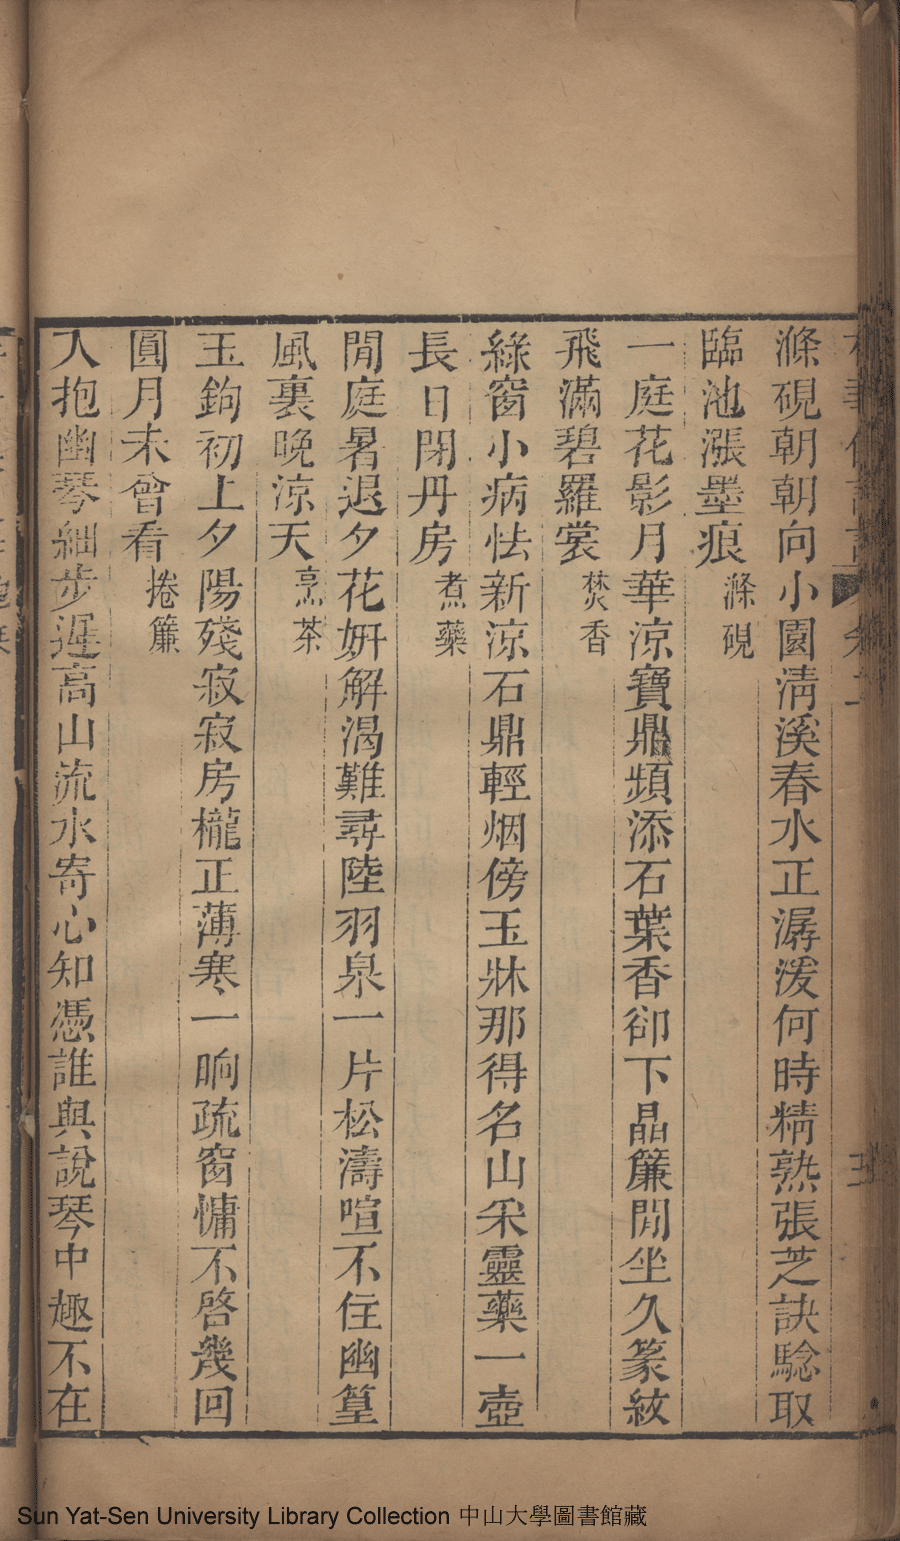 滌硯朝朝向小園淸溪春水正潺湲何時精熟張芝訣騐取
臨池漲墨痕滌硯
一庭花影月華涼寶鼎頻添石葉香卻下晶簾閒坐久篆紋
飛滿碧羅裳焚香
綠窗小病怯新涼石鼎輕烟傍玉牀那得名山采靈藥一壺
長日閉丹房煮藥
閒庭暑退夕花姸解渴難尋陸羽泉一片松濤喧不住幽篁
風裏晚涼天烹茶
玉鉤初上夕陽殘寂寂房櫳正薄寒一晌疏窗慵不啓幾回
圓月未曾看捲簾
人抱幽琴細步遲高山流水寄心知憑誰與說琴中趣不在
Sun Yat-Sen University Library Collection 中山大學圖書館藏